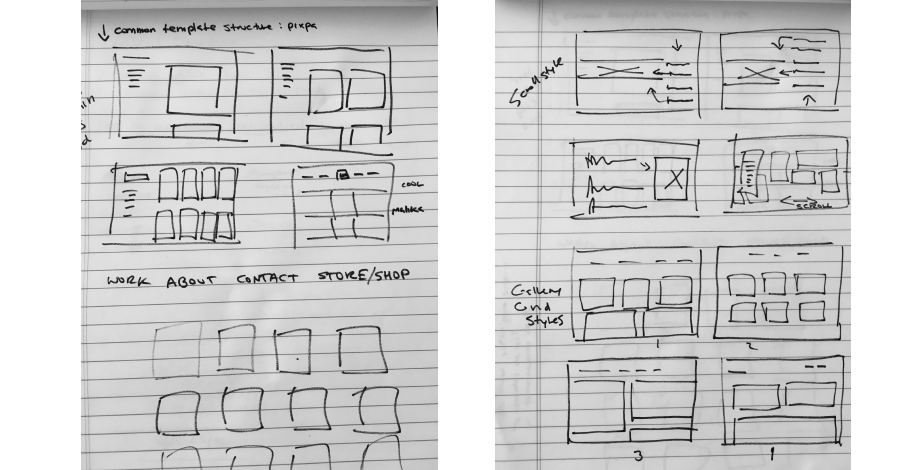 ↓ common template structure : pixpa
COOL
WORK ABOUT CONTACT STORE/SHOP
Scroll style
SCROLL
Gallery
Grid
Styles
1
2
3
1